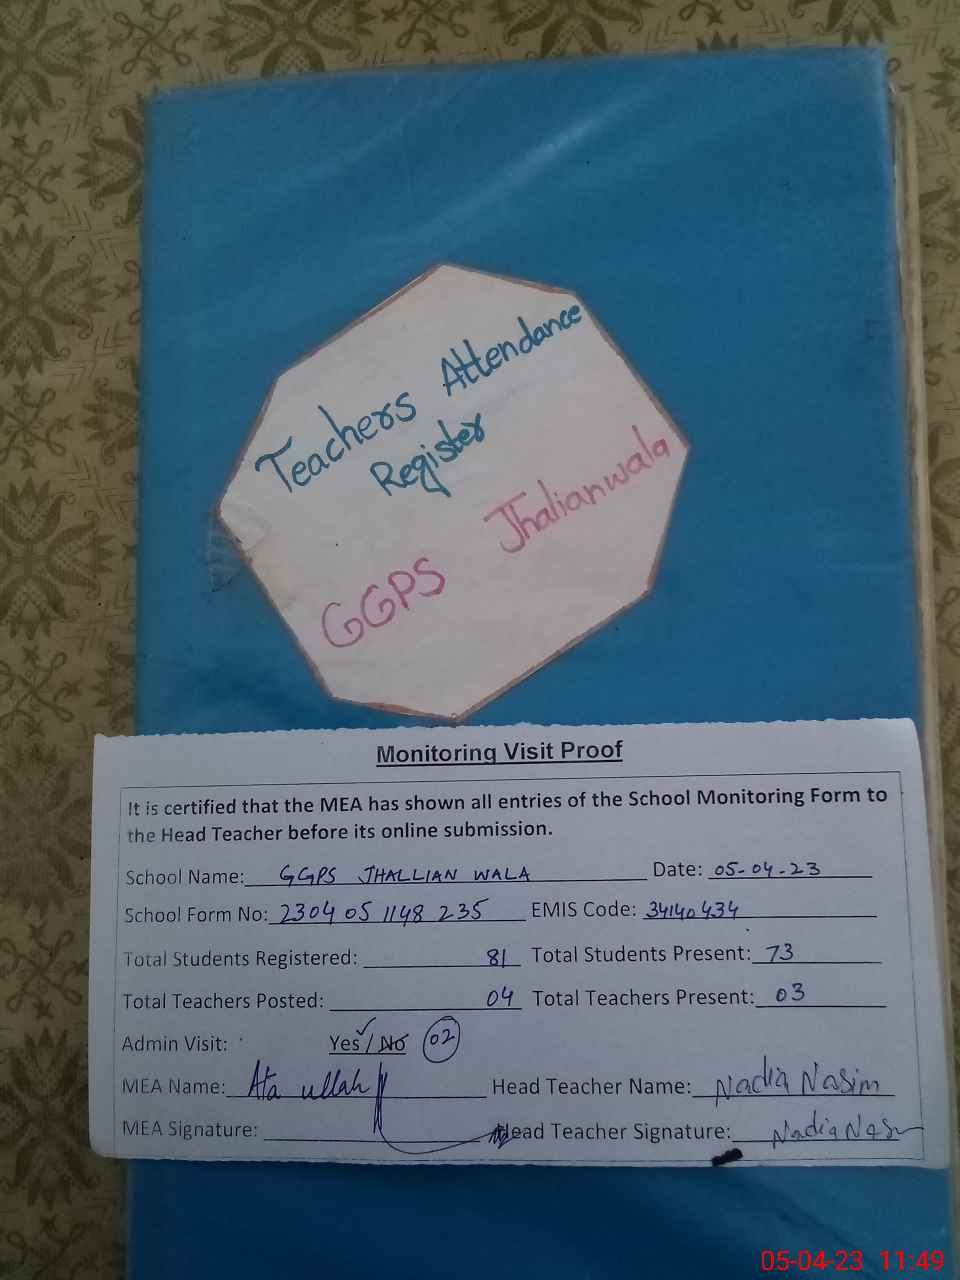 Teachers Attendance
Register
GGPS Jhalianwala
Monitoring Visit Proof
It is certified that the MEA has shown all entries of the School Monitoring Form to
the Head Teacher before its online submission.
School Name: GGPS JHALLIAN WALA Date: 05-04-23
School Form No: 2304 05 1148 235 EMIS Code: 34140434
Total Students Registered: 81 Total Students Present: 73
Total Teachers Posted: 04 Total Teachers Present: 03
Admin Visit: Yes / No 02
MEA Name: Ata ullah Head Teacher Name: Nadia Nasim
MEA Signature: Head Teacher Signature: Nadia Nasim
05-04-23 11:49